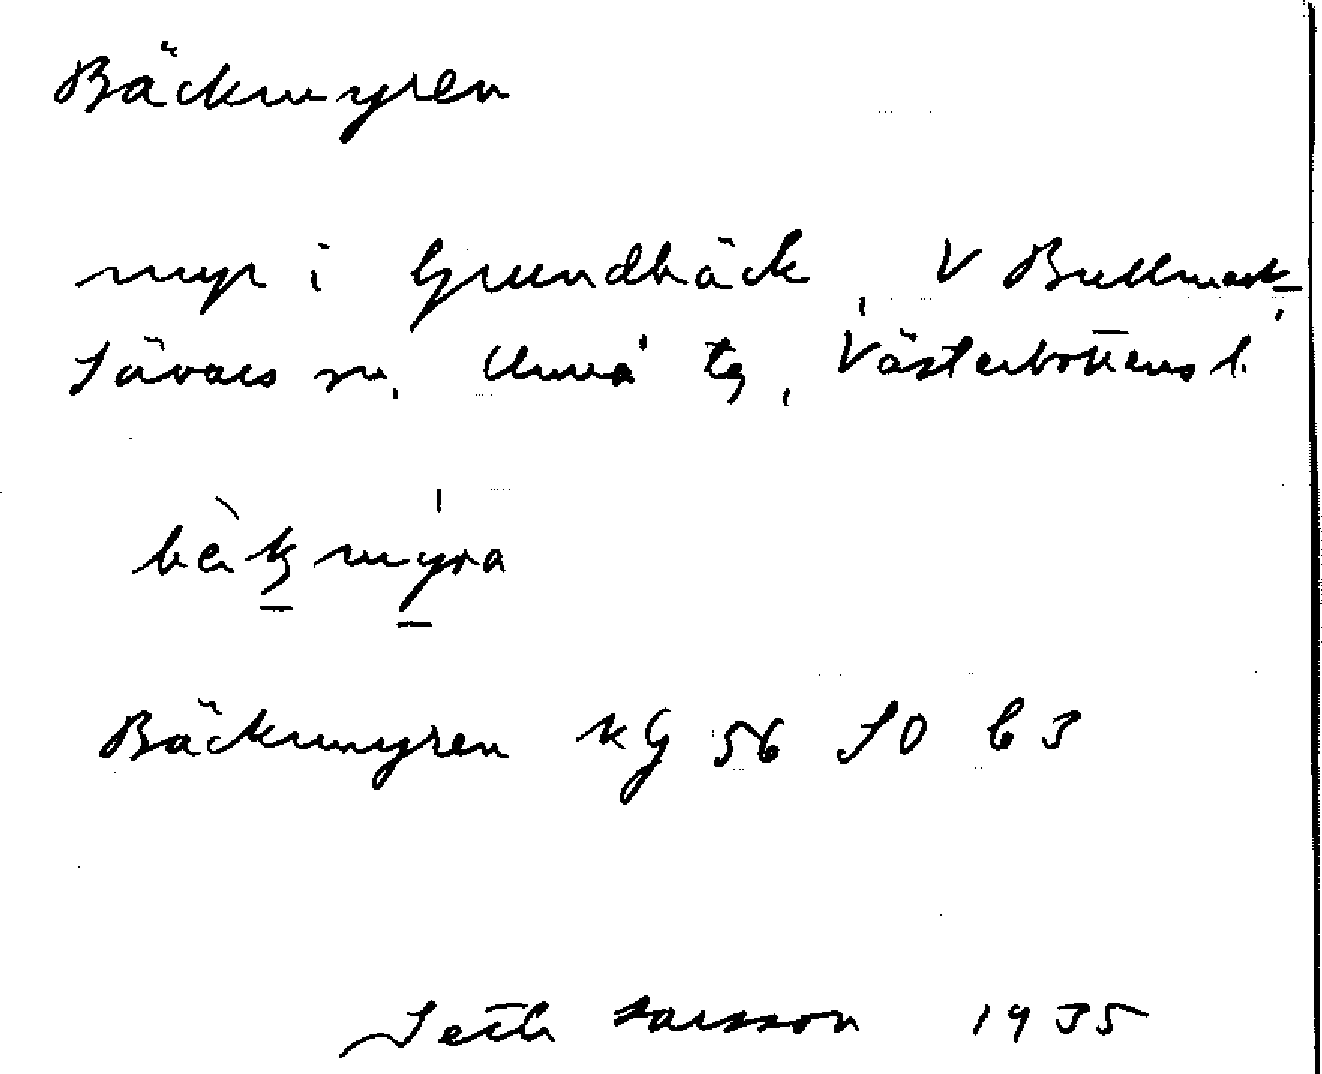 Bäckmyren
myr i Grundbäck, V Bullmark,
Sävars sn, Umeå tg, Västerbottens l.
Bäckmyren KG 56 SO b3
Seth Larsson 1935